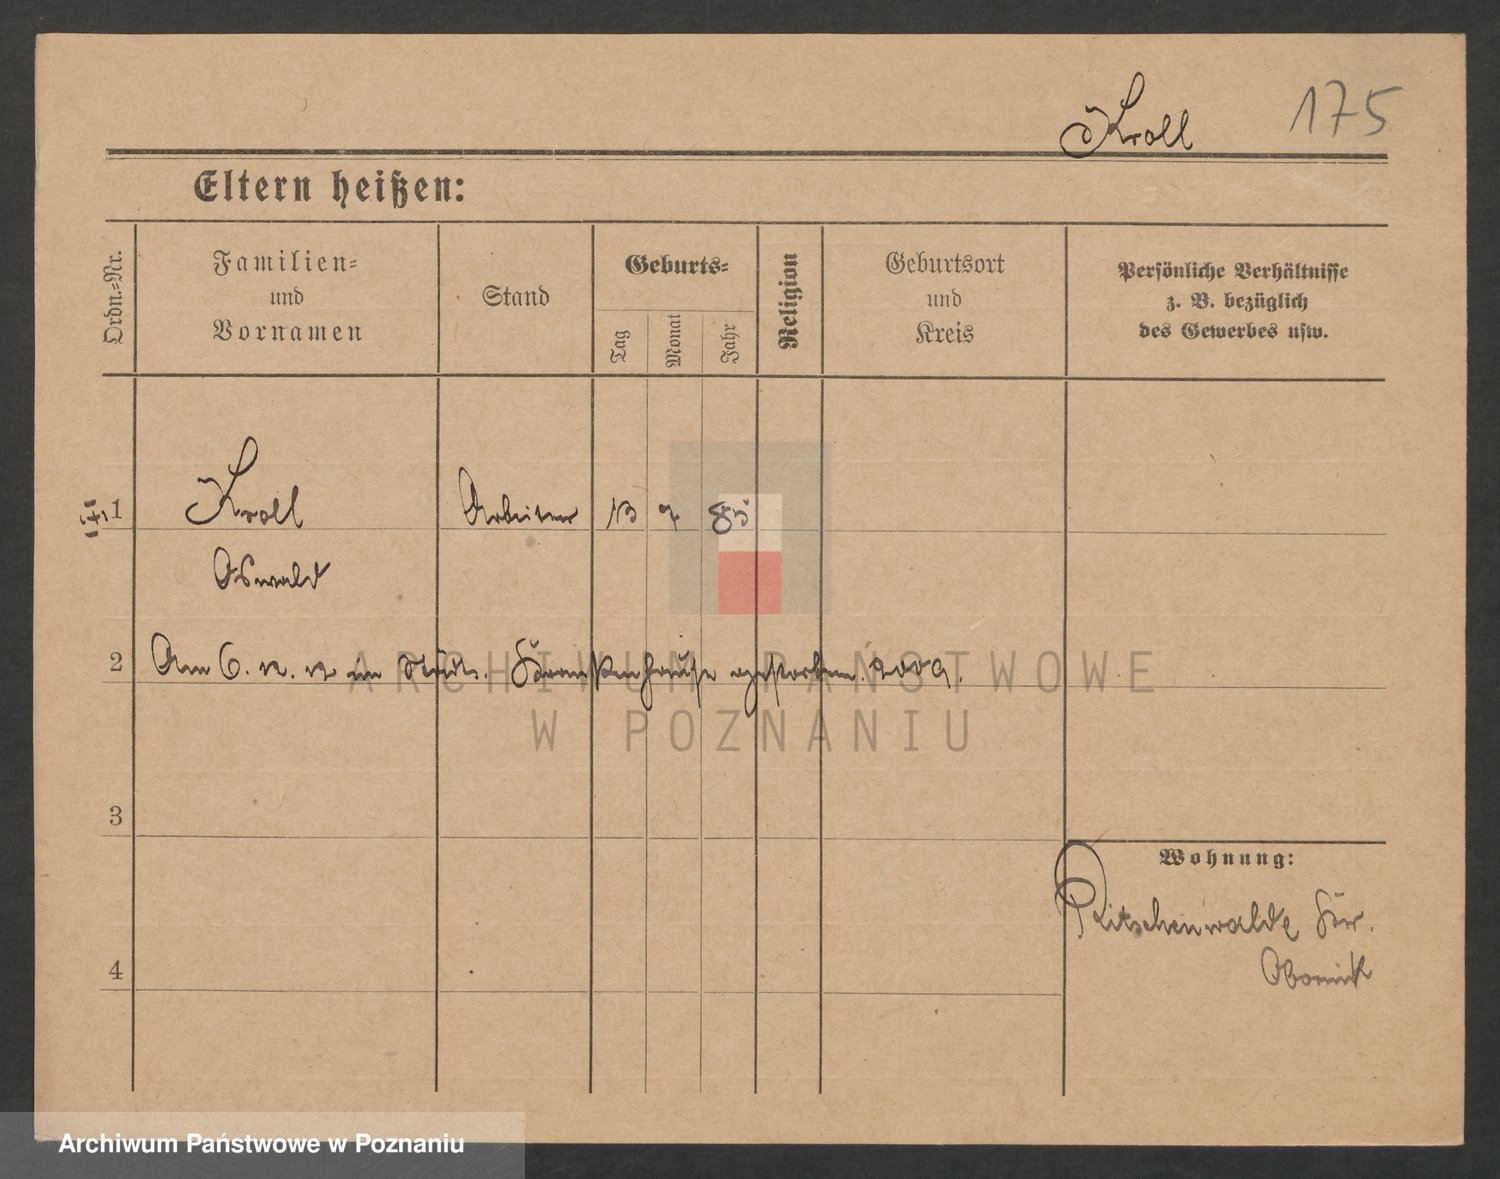 Kroll 175
Eltern heißen:
Ordn.-Nr.
Familien-
und
Vornamen
Stand
Geburts-
Tag
Monat
Jahr
Religion
Geburtsort
und
Kreis
Persönliche Verhältnisse
z. B. bezüglich
des Gewerbes usw.
1 Kroll Arbeiter 13 7 85
Oswald
2 Am 6. 12. 12 im städt. Krankenhause gestorben.
ARCHIWUM PAŃSTWOWE
W POZNANIU
3
Wohnung:
Ritschenwalde Kr.
4 Obornik
Archiwum Państwowe w Poznaniu